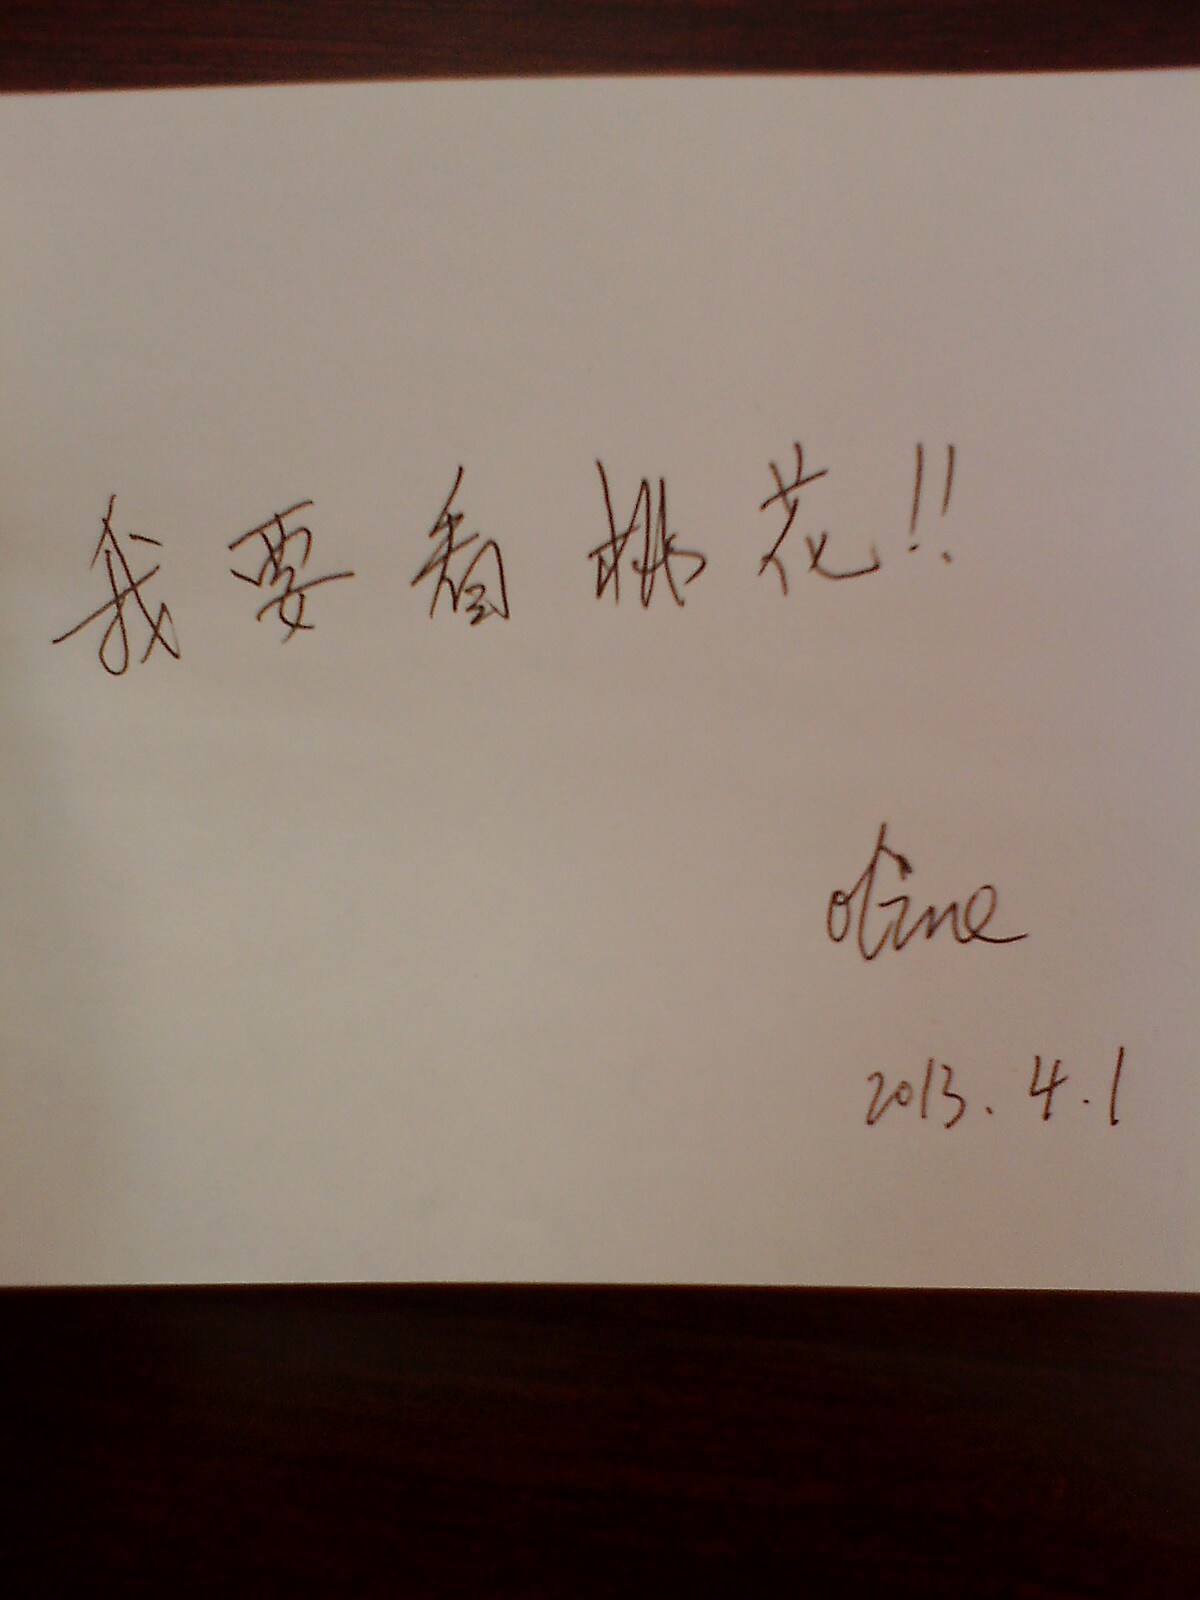 我要看桃花!!
oline
2013.4.1